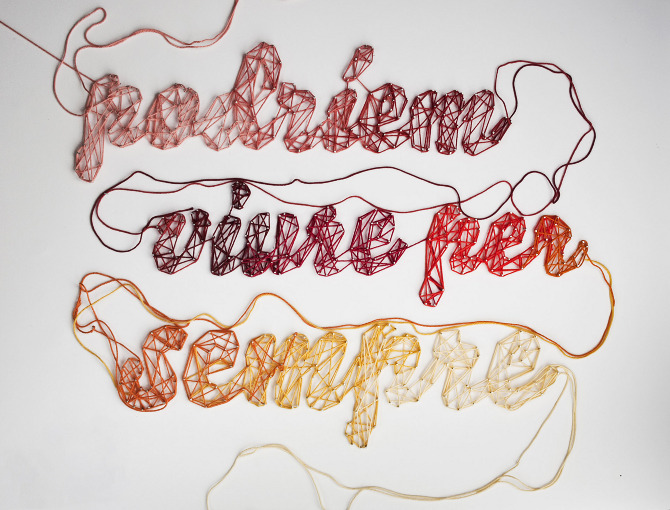 podriem
viure per
sempre